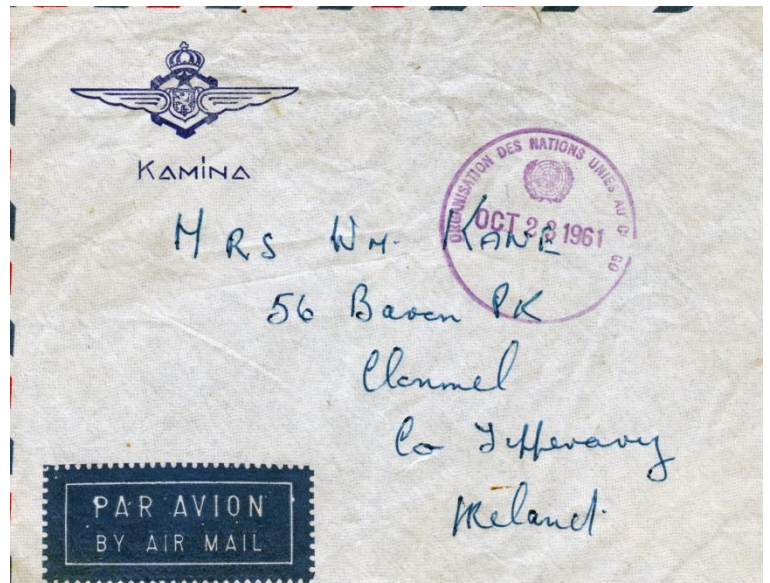 KAMINA
ORGANISATION DES NATIONS UNIES AU C GO
OCT 28 1961
MRS WM. KANE
56 Baron PK
Clonmel
Co Tipperary
Ireland.
PAR AVION
BY AIR MAIL